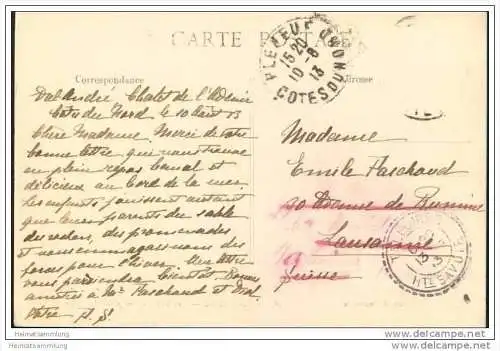 CARTE POSTALE
Correspondance
Adresse
PLENEUF
15 20
10 - 8
13
COTES DU NORD
Val André Chalet de l'Adenic
Cotes du Nord le 10 Août 13
Chère Madame. Merci de votre
bonne lettre qui nous trouve
en plein repos banal et
délicieux au bord de la mer.
Les enfants jouissent autant
que leurs parents du sable
des rochers, des promenades
et nous emmagasinons des
forces pour l'hiver. Une lettre
vous parviendra bientôt. Bonnes
amitiés à Mr Paschoud et
Votre
Madame
Emile Paschoud
30 Avenue de Rumine
Lausanne
Suisse
HTE SAVOIE
Heimatsammlung
Heimatsammlung